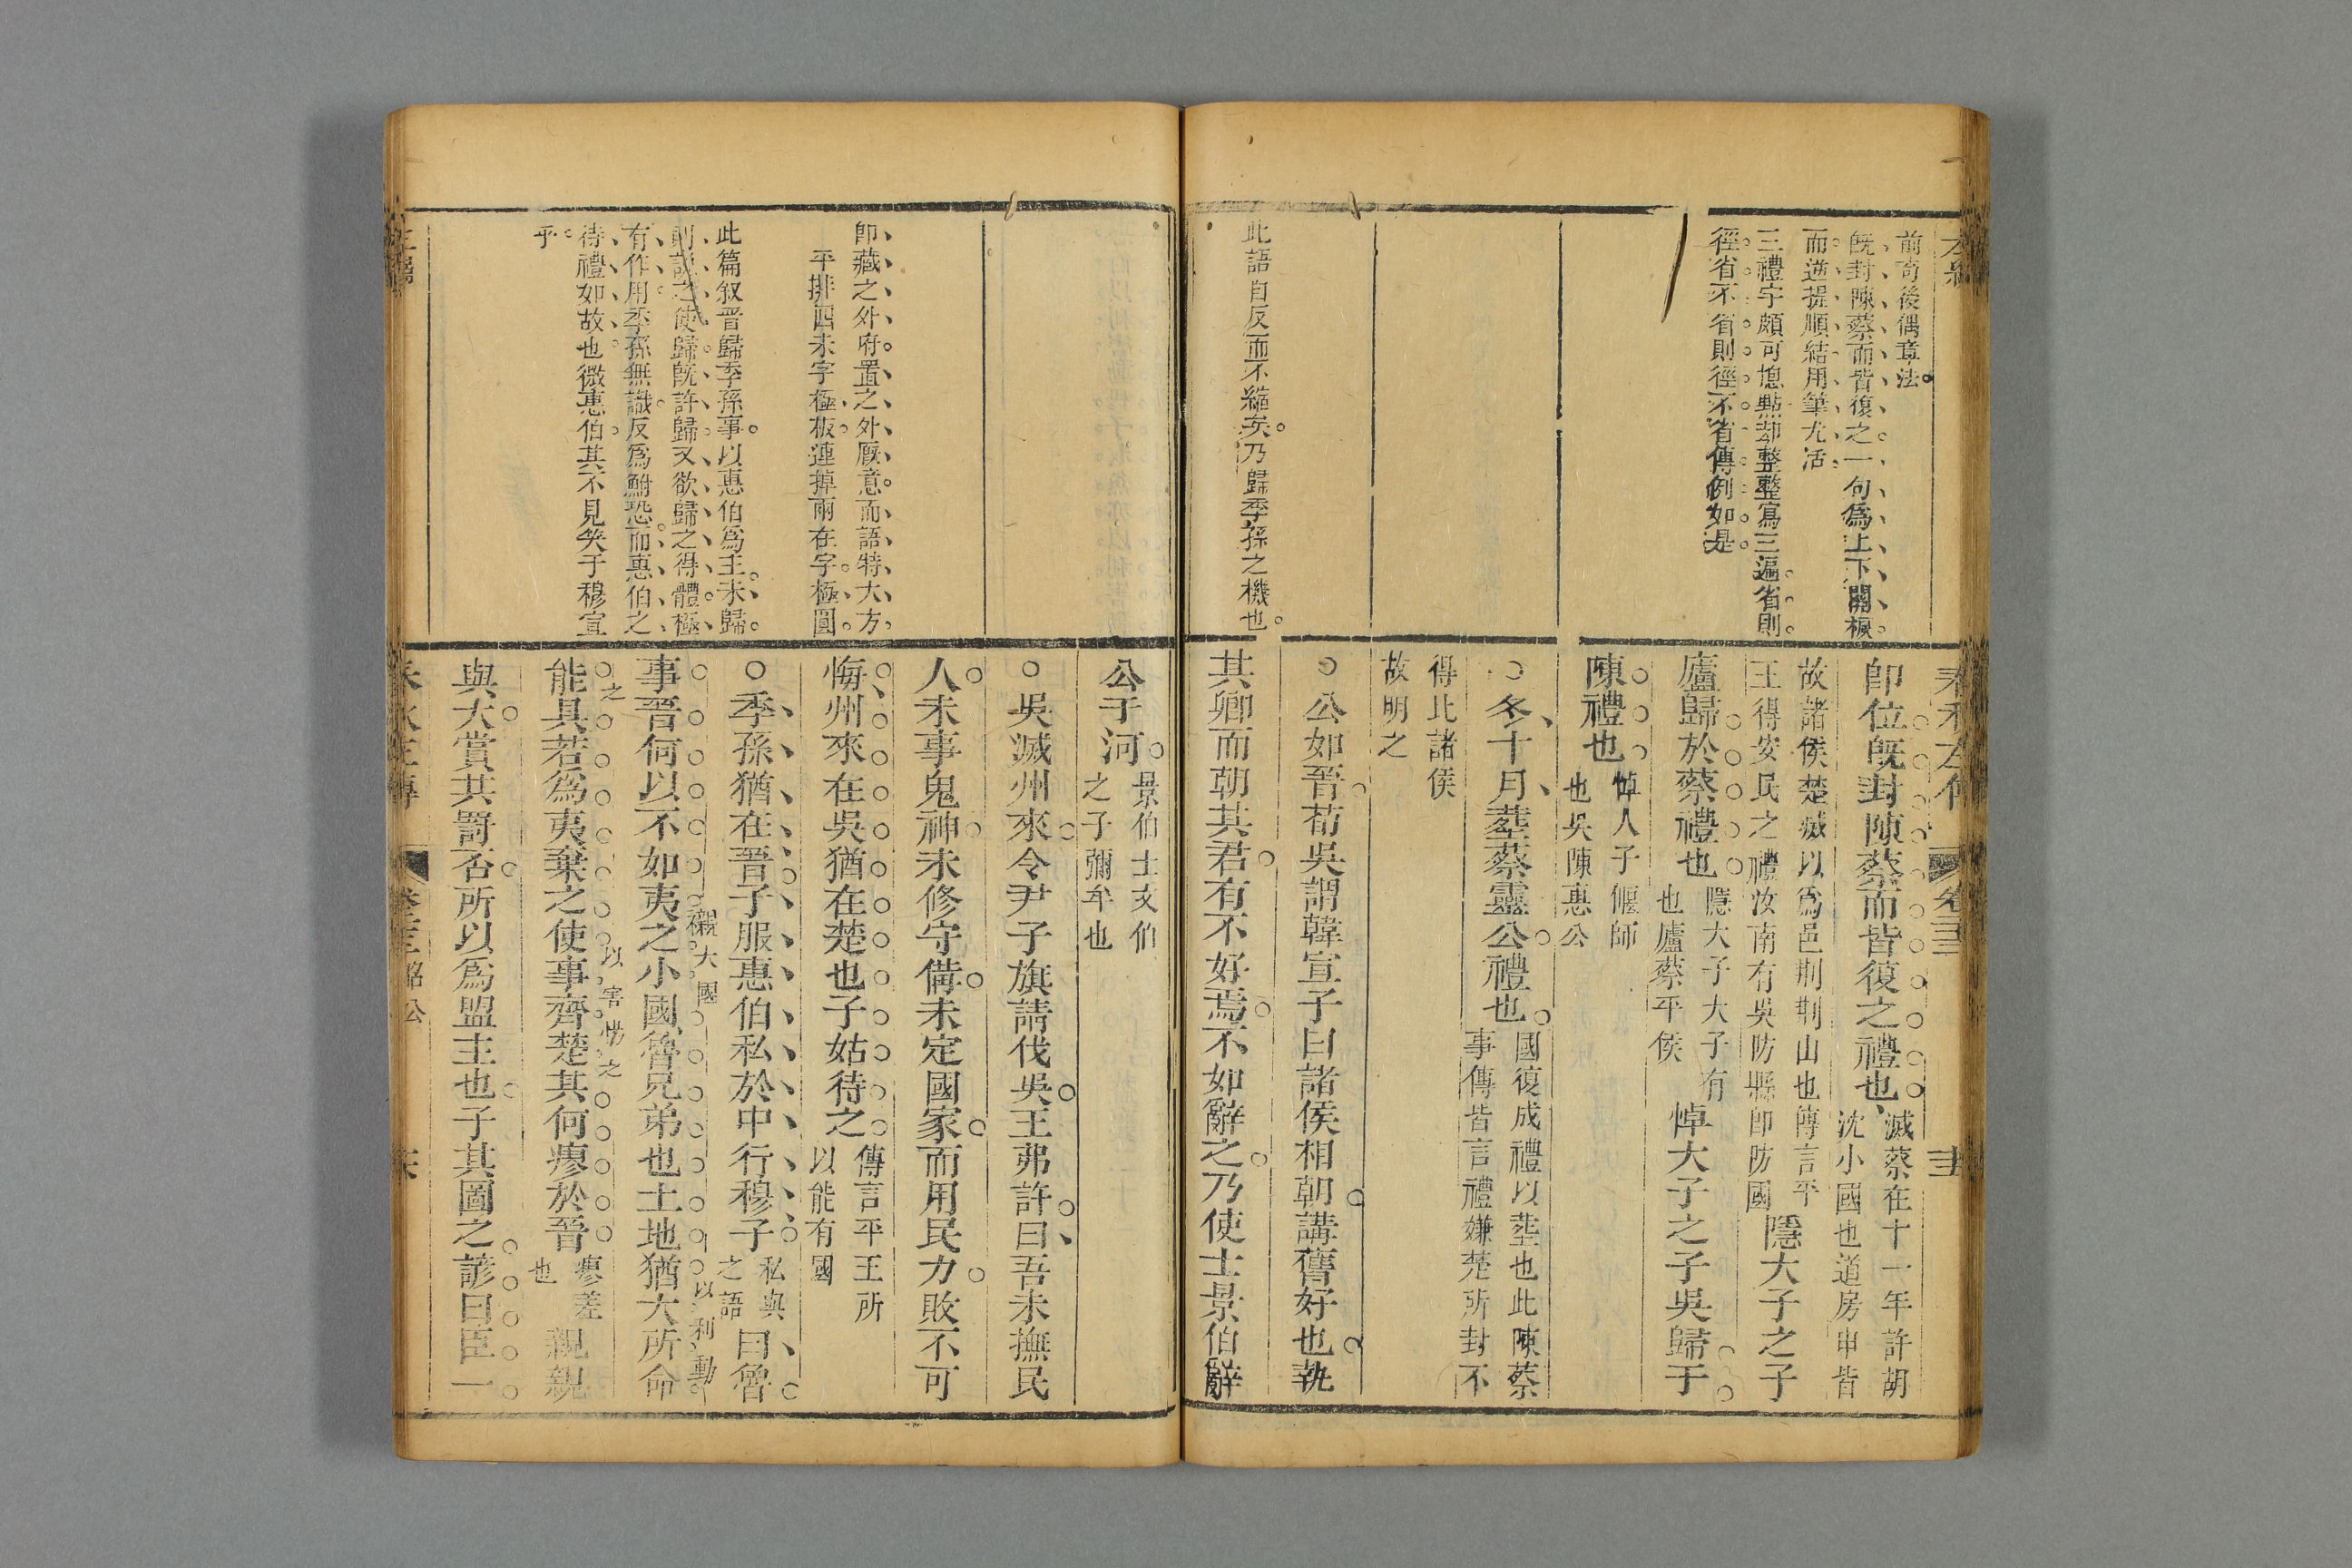 前奇後偶章法
旣封陳蔡而皆復之一句爲上下關棙
而逆提順結用筆尤活
三禮字頗可想點却整整寫三遍省則
徑省不省則徑不省傳例如是
此語自反而不縮矣乃歸季孫之機也
春秋左傳
卷二十三
卽位旣封陳蔡而皆復之禮也
滅蔡在十一年許胡
沈小國也道房申皆
故諸侯楚滅以爲邑荆荆山也傳言平
王得安民之禮汝南有吳防縣卽防國
隱大子之子
廬歸於蔡禮也
隱大子大子有
也廬蔡平侯
悼大子之子吳歸于
陳禮也
悼人子偃師
也吳陳惠公
○冬十月塟蔡靈公禮也
國復成禮以塟也此陳蔡
事傳皆言禮嫌楚所封不
得此諸侯
故明之
○公如晉荀吳謂韓宣子曰諸侯相朝講舊好也執
其卿而朝其君有不好焉不如辭之乃使士景伯辭
卽藏之外府置之外厩意而語特大方
平排四未字極板連掉兩在字極圓
此篇叙晋歸季孫事以惠伯爲主未歸
則說之使歸旣許歸又欲歸之得體極
有作用季孫無識反爲鮒恐而惠伯之
待禮如故也微惠伯其不見笑于穆宣
乎
公于河
景伯士文伯
之子彌牟也
○吳滅州來令尹子旗請伐吳王弗許曰吾未撫民
人未事鬼神未修守備未定國家而用民力敗不可
悔州來在吳猶在楚也子姑待之
傳言平王所
以能有國
○季孫猶在晋子服惠伯私於中行穆子
私與
之語
曰魯
事晋何以不如夷之小國魯兄弟也土地猶大所命
親大國
以利動
之
能具若爲夷棄之使事齊楚其何瘳於晉
以害惕之
瘳差
也
親親
與大賞共罰否所以爲盟主也子其圖之諺曰臣一
春秋左傳
昭公